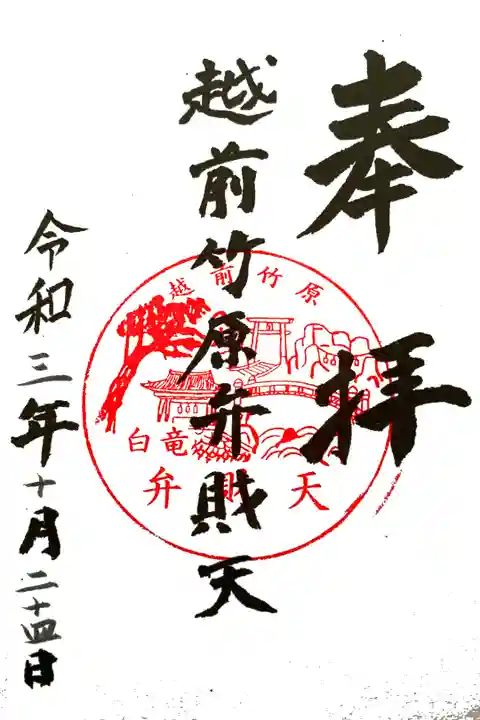 奉拝
越前竹原弁財天
越前竹原
白竜
弁財天
令和三年十月二十四日